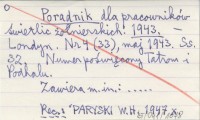 Poradnik dla pracowników
świetlic żołnierskich. 1943. –
Londyn. Nr 4 (33), maj 1943. Ss.
32. Numer poświęcony Tatrom i
Podhalu.
Zawiera m. in.: .....
Rec.: PARYSKI W.H. 1947.